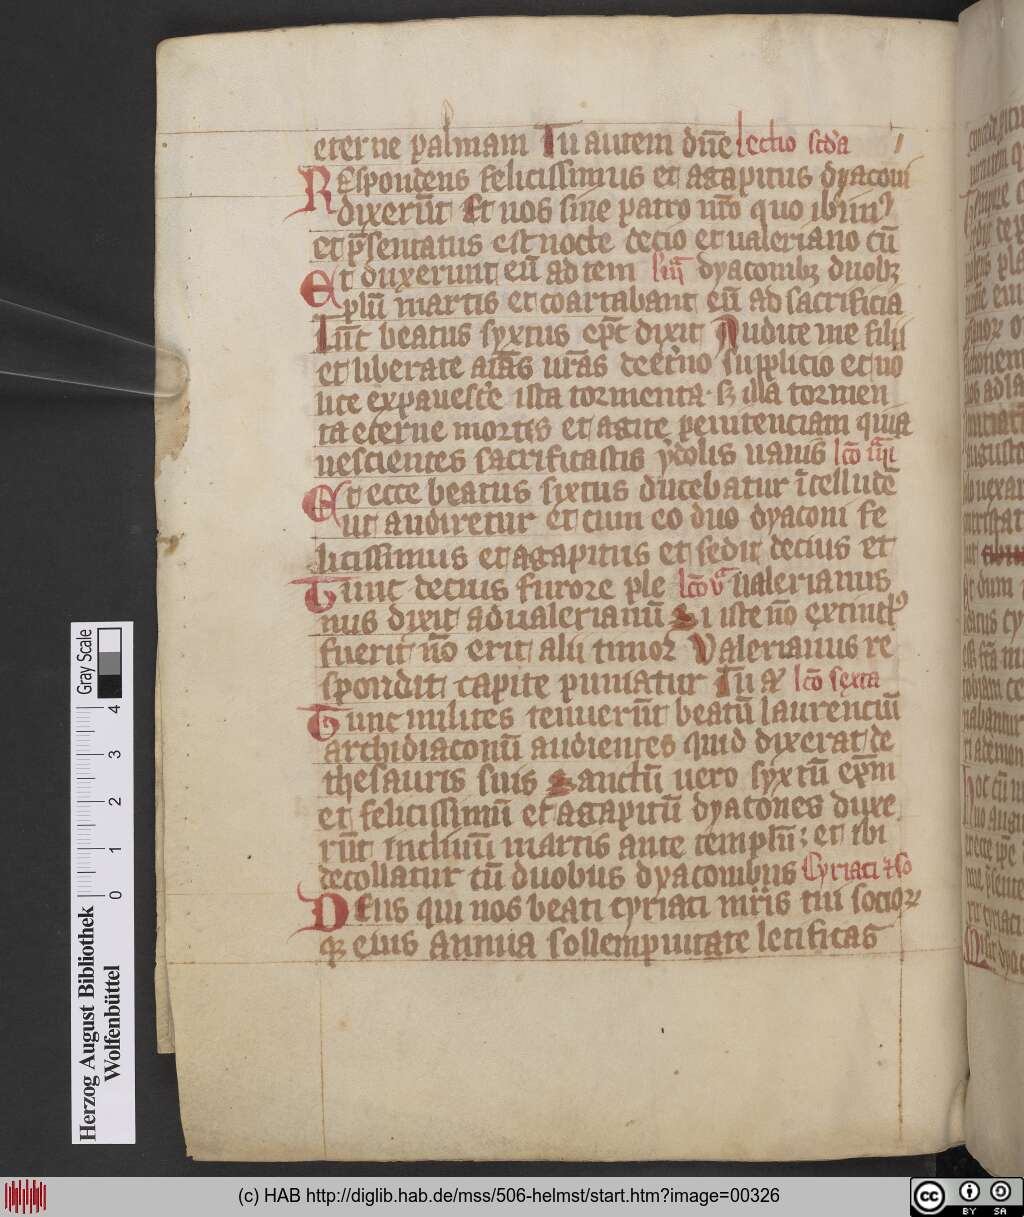 eterne palmam Tu autem dn̄e Lectio scd'a
REspondens felicissimus et agapitus dyaconi
dixerūt Et nos sine patro nr̄o quo ibim9
et p̄sentatus est nocte decio et ualeriano cū
Et duxerunt eū adtem iiiᵃ dyaconibȝ duobȝ
plū martis et coartabant eū ad sacrificia
Tūc beatus syxtus ep̄c dixit Audite me filij
et liberate aīas ur̄as de et'no supplicio et no
lite expauesc'e ista tormenta sȝ illa tormen
ta eterne mortis et agite penitenciam quia
nescientes sacrificastis ydolis uanis lc̄o iiiiᵃ
Et ecce beatus sixtus ducebatur ītellude
ut audiretur et cum eo duo dyaconi fe
licissimus et agapitus et sedit decius et
Tunc decius furore ple lc̄o vᵃ ualerianus
nus dixit ad ualerianū Si iste nō extinct9
fuerit nō erit alii timor Valerianus re
spondit capite puniatur Tu a lc̄o sexta
Tunc milites tenuerūt beatū laurenciū
archidiaconū audientes quid dixerat de
thesauris suis Sanctū uero syxtū ep̄m
et felicissimū et agapitū dyacones duxe
rūt in cliuū martis ante templū; et ibi
decollatur cū duobus dyaconibus Cyriaci et so
DEus qui nos beati cyriaci mr̄is tui socioꝝ
qȝ eius annua sollempnitate letificas
Gray Scale
0 1 2 3 4
Herzog August Bibliothek
Wolfenbüttel
(c) HAB http://diglib.hab.de/mss/506-helmst/start.htm?image=00326
cc BY SA